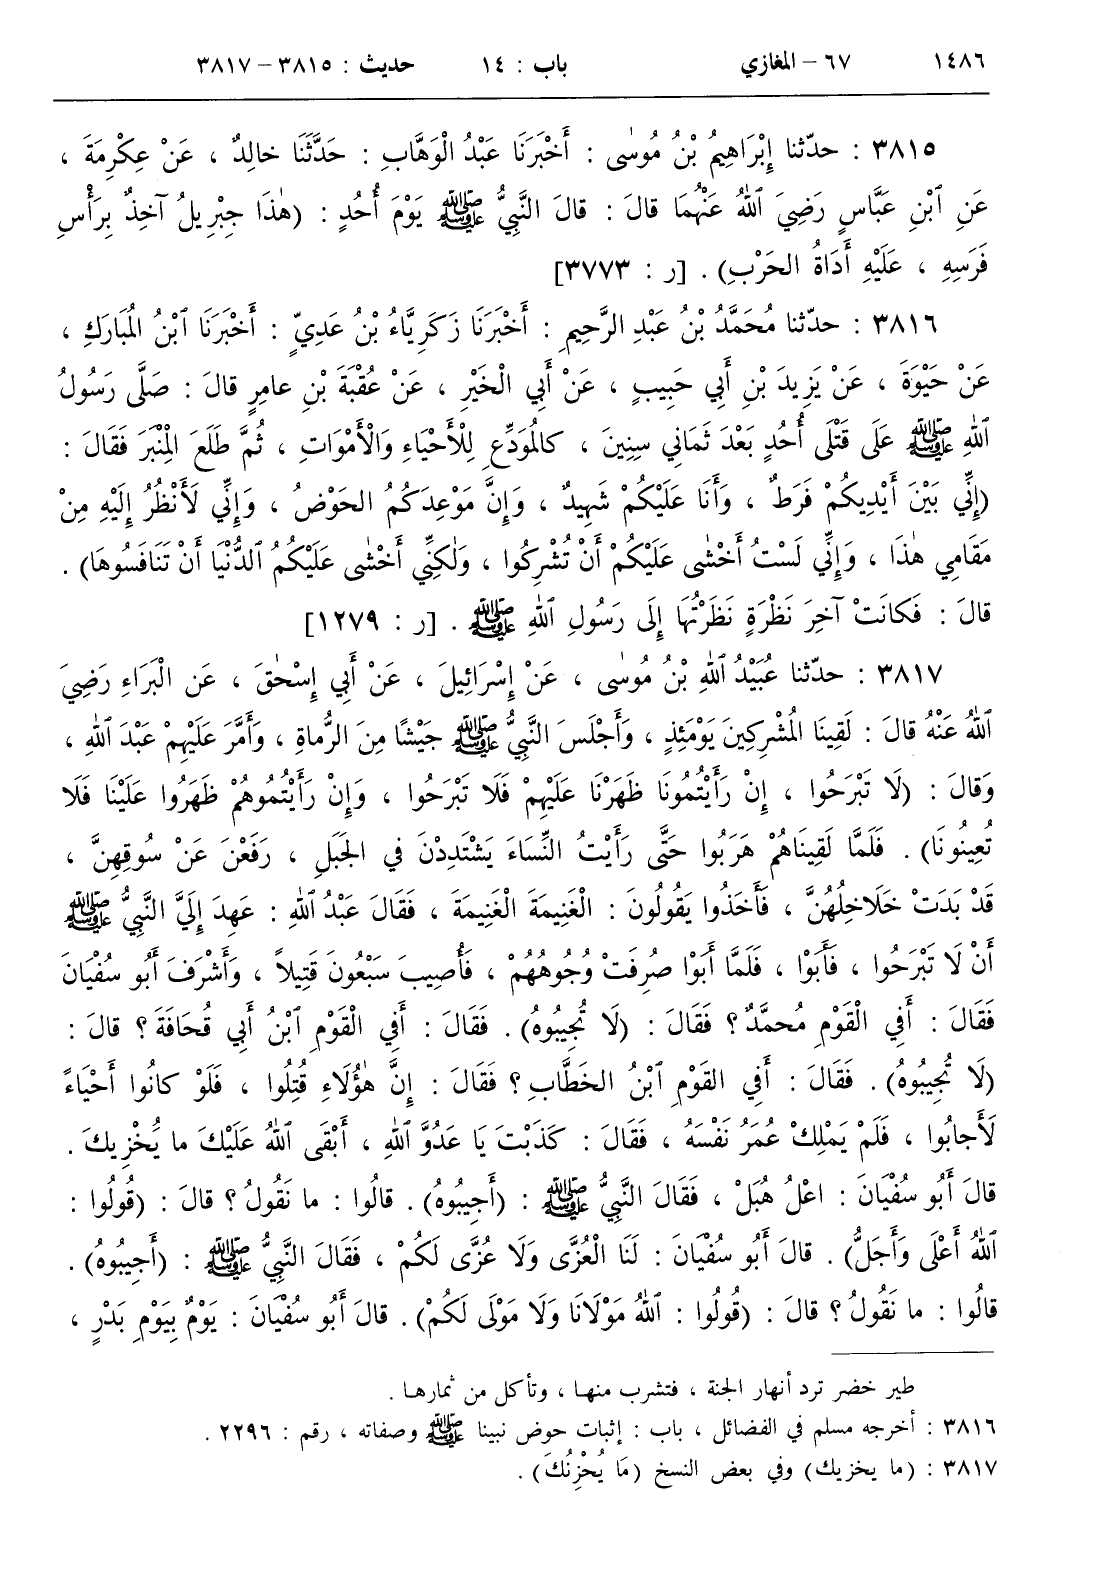 ١٤٨٦ ٦٧ – المغازي باب : ١٤ حديث : ٣٨١٥ – ٣٨١٧
٣٨١٥ : حدّثنا إِبْرَاهِيمُ بْنُ مُوسٰى : أَخْبَرَنَا عَبْدُ الْوَهَّابِ : حَدَّثَنَا خالِدٌ ، عَنْ عِكْرِمَةَ ،
عَنِ ٱبْنِ عَبَّاسٍ رَضِيَ ٱللهُ عَنْهُمَا قالَ : قالَ النَّبِيُّ ﷺ يَوْمَ أُحُدٍ : (هٰذَا جِبْرِيلُ آخِذٌ بِرَأْسِ
فَرَسِهِ ، عَلَيْهِ أَدَاةُ الحَرْبِ) . [ر : ٣٧٧٣]
٣٨١٦ : حدّثنا مُحَمَّدُ بْنُ عَبْدِ الرَّحِيمِ : أَخْبَرَنَا زَكَرِيَّاءُ بْنُ عَدِيٍّ : أَخْبَرَنَا ٱبْنُ المُبَارَكِ ،
عَنْ حَيْوَةَ ، عَنْ يَزِيدَ بْنِ أَبِي حَبِيبٍ ، عَنْ أَبِي الْخَيْرِ ، عَنْ عُقْبَةَ بْنِ عامِرٍ قالَ : صَلَّى رَسُولُ
ٱللهِ ﷺ عَلَى قَتْلَى أُحُدٍ بَعْدَ ثَمَانِي سِنِينَ ، كالمُوَدِّعِ لِلْأَحْيَاءِ وَالْأَمْوَاتِ ، ثُمَّ طَلَعَ الْمِنْبَرَ فَقَالَ :
(إِنِّي بَيْنَ أَيْدِيكُمْ فَرَطٌ ، وَأَنَا عَلَيْكُمْ شَهِيدٌ ، وَإِنَّ مَوْعِدَكُمُ الحَوْضُ ، وَإِنِّي لَأَنْظُرُ إِلَيْهِ مِنْ
مَقَامِي هٰذَا ، وَإِنِّي لَسْتُ أَخْشٰى عَلَيْكُمْ أَنْ تُشْرِكُوا ، وَلٰكِنِّي أَخْشٰى عَلَيْكُمُ ٱلدُّنْيَا أَنْ تَنَافَسُوهَا) .
قالَ : فَكانَتْ آخِرَ نَظْرَةٍ نَظَرْتُهَا إِلَى رَسُولِ ٱللهِ ﷺ . [ر : ١٢٧٩]
٣٨١٧ : حدّثنا عُبَيْدُ ٱللهِ بْنُ مُوسٰى ، عَنْ إِسْرَائِيلَ ، عَنْ أَبِي إِسْحٰقَ ، عَنِ الْبَرَاءِ رَضِيَ
ٱللهُ عَنْهُ قالَ : لَقِينَا المُشْرِكِينَ يَوْمَئِذٍ ، وَأَجْلَسَ النَّبِيُّ ﷺ جَيْشًا مِنَ الرُّماةِ ، وَأَمَّرَ عَلَيْهِمْ عَبْدَ ٱللهِ ،
وَقالَ : (لَا تَبْرَحُوا ، إِنْ رَأَيْتُمُونَا ظَهَرْنَا عَلَيْهِمْ فَلَا تَبْرَحُوا ، وَإِنْ رَأَيْتُمُوهُمْ ظَهَرُوا عَلَيْنَا فَلَا
تُعِينُونَا) . فَلَمَّا لَقِينَاهُمْ هَرَبُوا حَتَّى رَأَيْتُ النِّسَاءَ يَشْتَدِدْنَ في الجَبَلِ ، رَفَعْنَ عَنْ سُوقِهِنَّ ،
قَدْ بَدَتْ خَلَاخِلُهُنَّ ، فَأَخَذُوا يَقُولُونَ : الْغَنِيمَةَ الْغَنِيمَةَ ، فَقَالَ عَبْدُ ٱللهِ : عَهِدَ إِلَيَّ النَّبِيُّ ﷺ
أَنْ لَا تَبْرَحُوا ، فَأَبَوْا ، فَلَمَّا أَبَوْا صُرِفَتْ وُجُوهُهُمْ ، فَأُصِيبَ سَبْعُونَ قَتِيلاً ، وَأَشْرَفَ أَبُو سُفْيَانَ
فَقَالَ : أَفِي الْقَوْمِ مُحمَّدٌ ؟ فَقَالَ : (لَا تُجِيبُوهُ) . فَقَالَ : أَفِي الْقَوْمِ ٱبْنُ أَبِي قُحَافَةَ ؟ قالَ :
(لَا تُجِيبُوهُ) . فَقَالَ : أَفِي القَوْمِ ٱبْنُ الخَطَّابِ ؟ فَقَالَ : إِنَّ هٰؤُلَاءِ قُتِلُوا ، فَلَوْ كانُوا أَحْيَاءً
لَأَجابُوا ، فَلَمْ يَمْلِكْ عُمَرُ نَفْسَهُ ، فَقَالَ : كَذَبْتَ يَا عَدُوَّ ٱللهِ ، أَبْقَى ٱللهُ عَلَيْكَ ما يُخْزِيكَ .
قالَ أَبُو سُفْيَانَ : اعْلُ هُبَلْ ، فَقَالَ النَّبِيُّ ﷺ : (أَجِيبُوهُ) . قالُوا : ما نَقُولُ ؟ قالَ : (قُولُوا :
ٱللهُ أَعْلَى وَأَجَلُّ) . قالَ أَبُو سُفْيَانَ : لَنَا الْعُزَّى وَلَا عُزَّى لَكُمْ ، فَقَالَ النَّبِيُّ ﷺ : (أَجِيبُوهُ) .
قالُوا : ما نَقُولُ ؟ قالَ : (قُولُوا : ٱللهُ مَوْلَانَا وَلَا مَوْلَى لَكُمْ) . قالَ أَبُو سُفْيَانَ : يَوْمٌ بِيَوْمِ بَدْرٍ ،
طير خضر ترد أنهار الجنة ، فتشرب منها ، وتأكل من ثمارها .
٣٨١٦ : أخرجه مسلم في الفضائل ، باب : إثبات حوض نبينا ﷺ وصفاته ، رقم : ٢٢٩٦ .
٣٨١٧ : (ما يخزيك) وفي بعض النسخ (مَا يُحْزِنُكَ) .